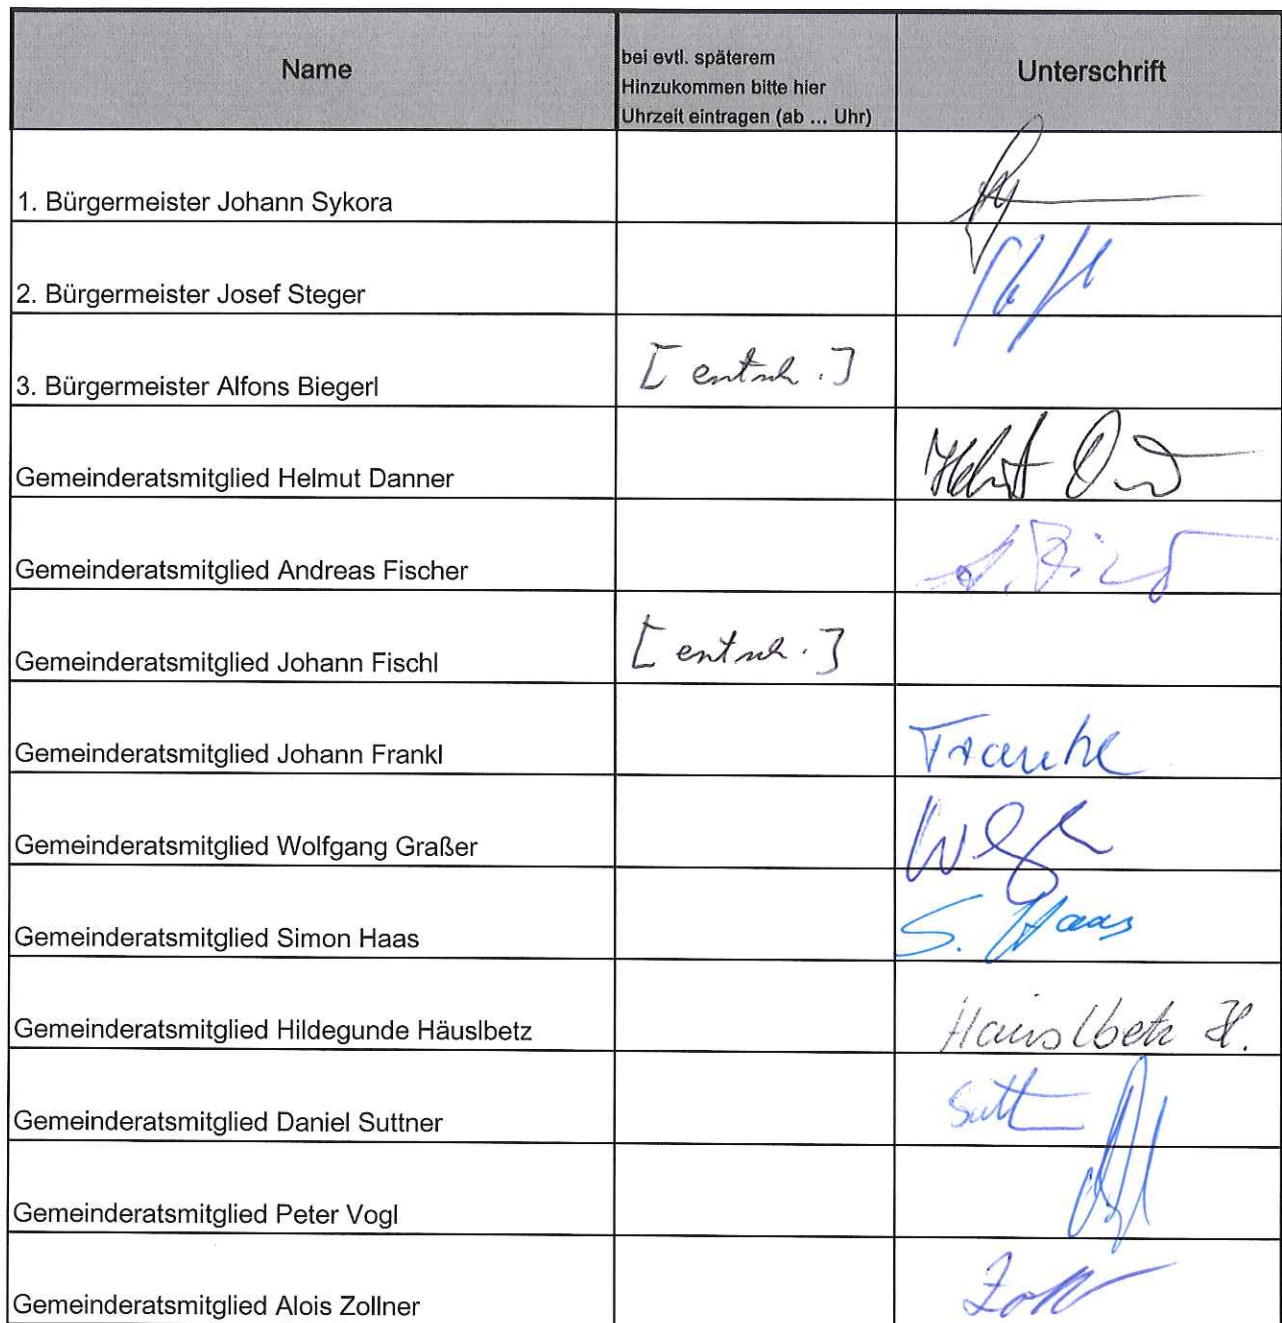 Name
bei evtl. späterem
Hinzukommen bitte hier
Uhrzeit eintragen (ab ... Uhr)
Unterschrift
1. Bürgermeister Johann Sykora
2. Bürgermeister Josef Steger
3. Bürgermeister Alfons Biegerl [entsch.]
Gemeinderatsmitglied Helmut Danner
Gemeinderatsmitglied Andreas Fischer
Gemeinderatsmitglied Johann Fischl [entsch.]
Gemeinderatsmitglied Johann Frankl Frankl
Gemeinderatsmitglied Wolfgang Graßer
Gemeinderatsmitglied Simon Haas S. Haas
Gemeinderatsmitglied Hildegunde Häuslbetz Häuslbetz H.
Gemeinderatsmitglied Daniel Suttner
Gemeinderatsmitglied Peter Vogl
Gemeinderatsmitglied Alois Zollner